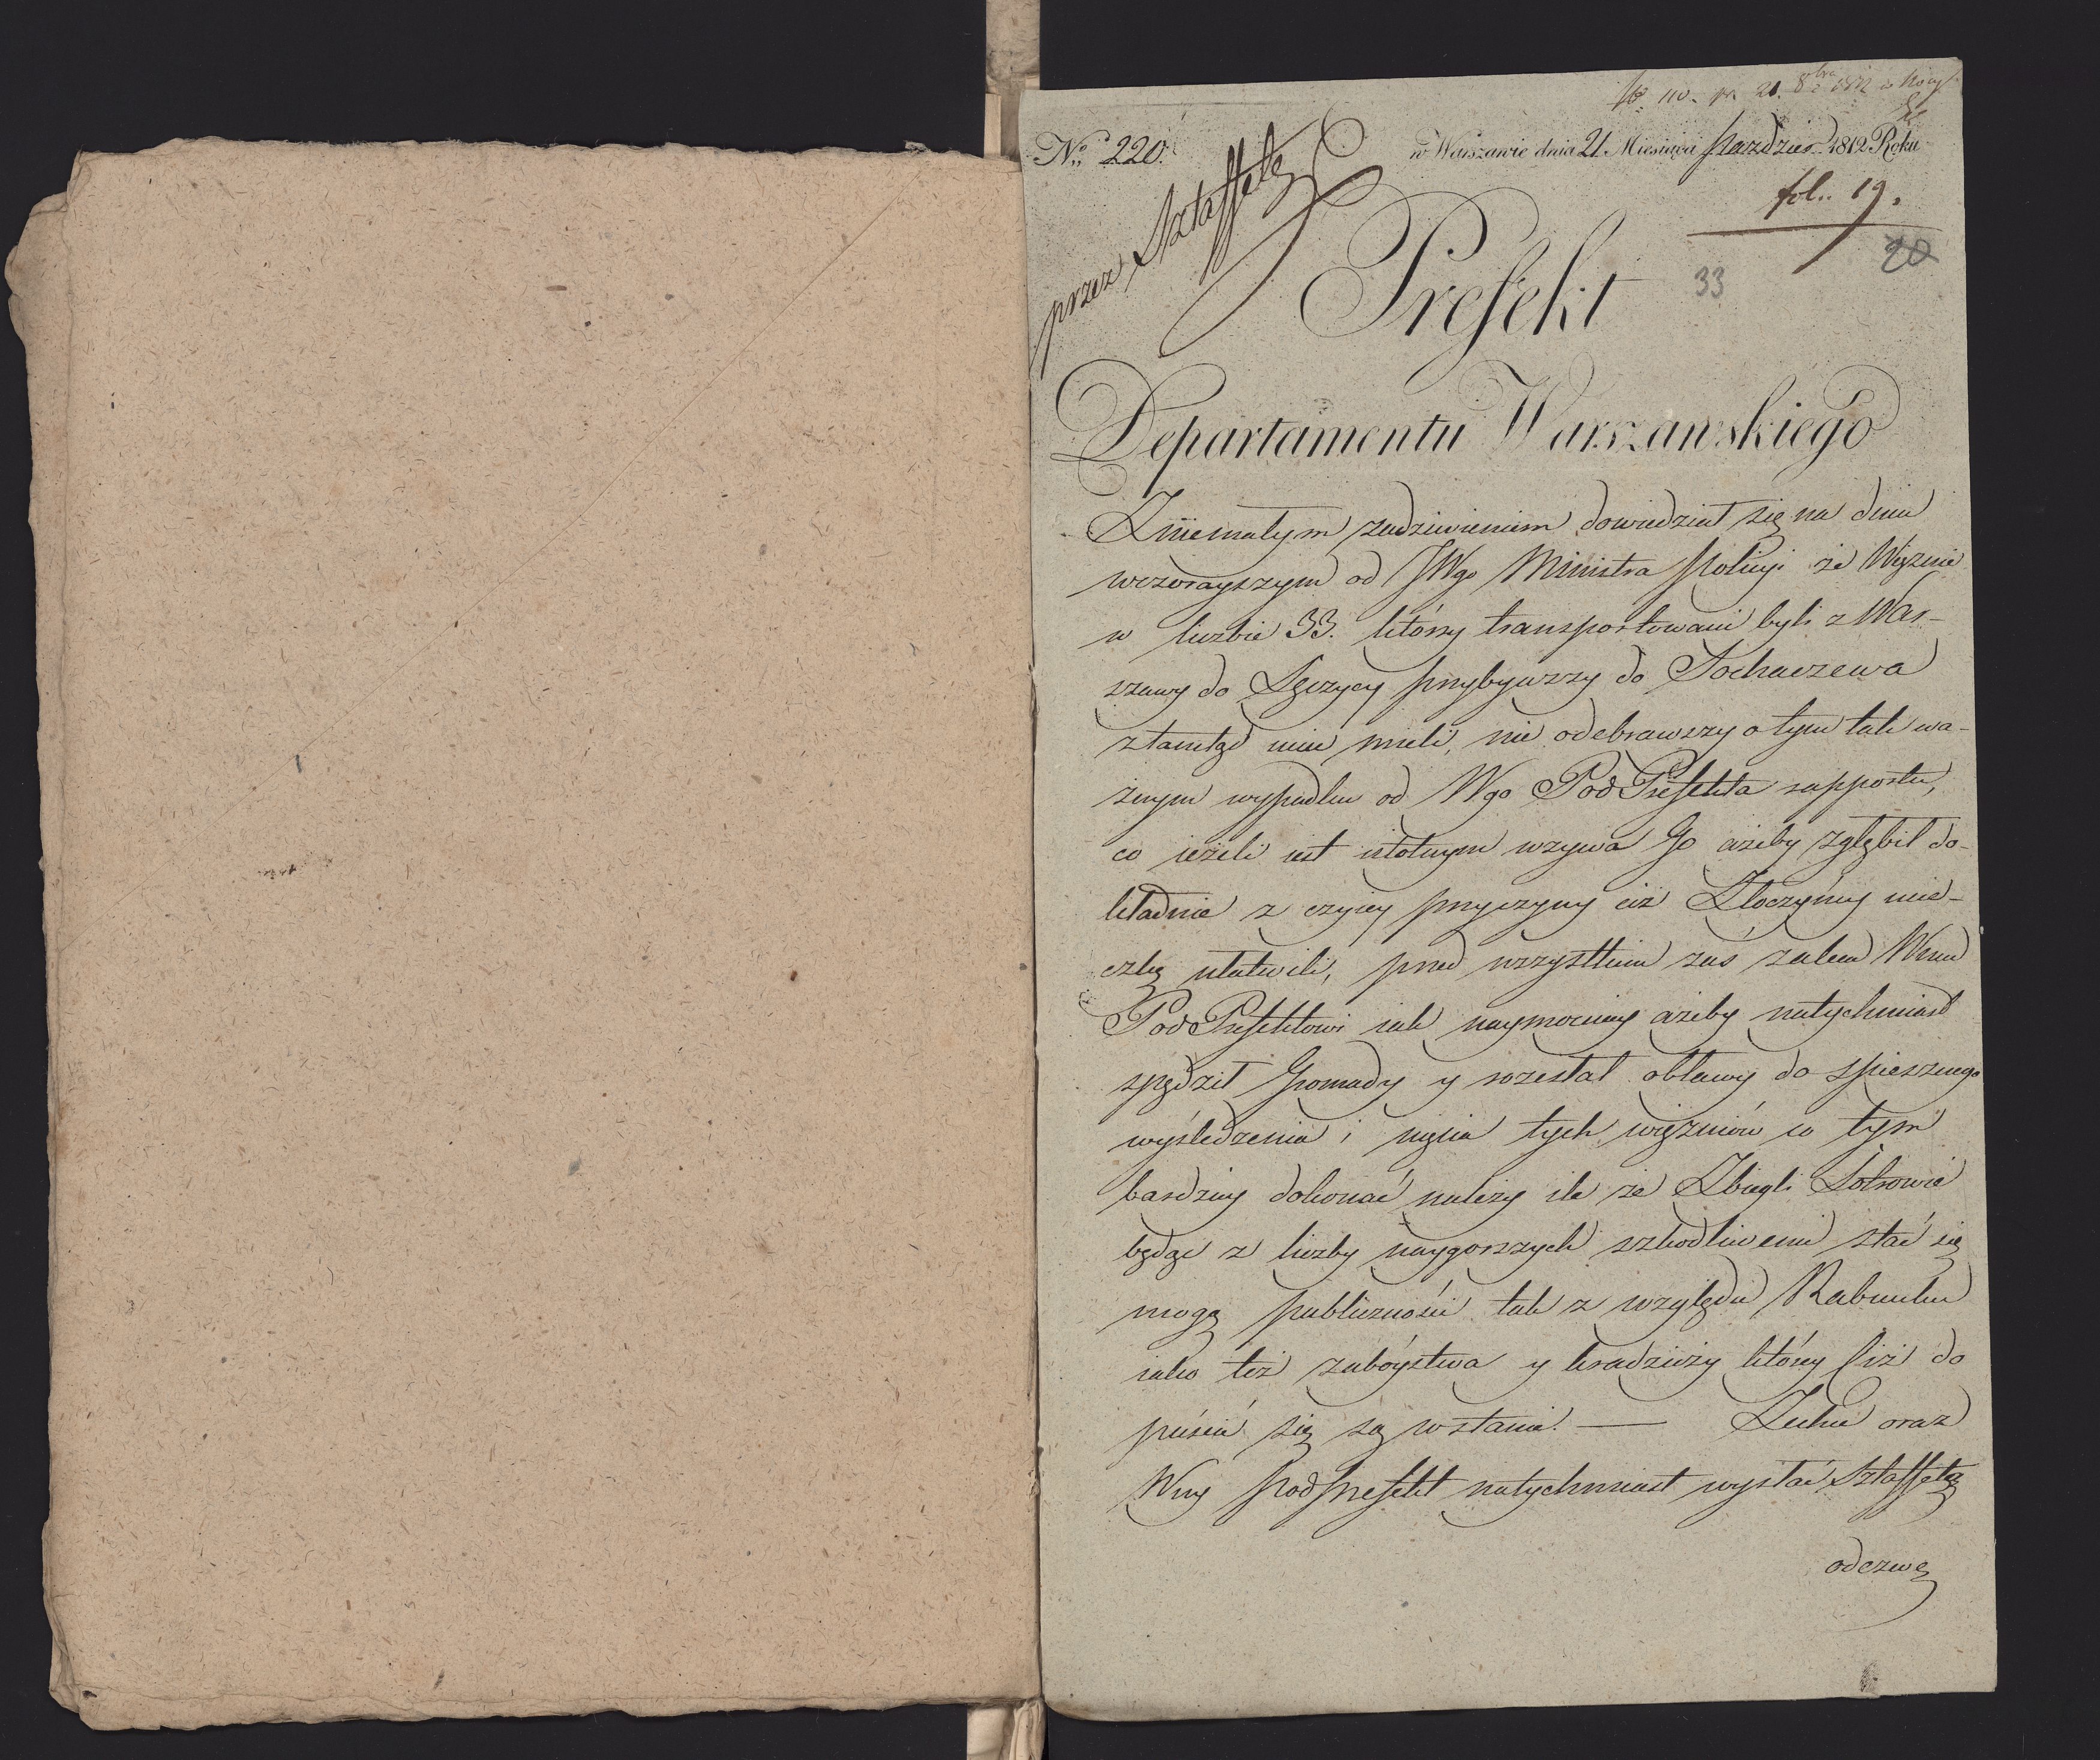 No 110. pr. 21. 8bra 1812 w Nocy
No 220.
w Warszawie dnia 21 Miesiąca Paździer. 1812 Roku
przez Sztaffetę
fol. 19.
20
33
Prefekt
Departamentu Warszawskiego
Z niemałym zadziwieniem dowiedział się na dniu
wczorayszym od JWgo Ministra Policyi że Więznie
w liczbie 33. którzy transportowani byli z War-
szawy do Łęczycy przybywszy do Sochaczewa
ztamtąd uiść mieli, nie odebrawszy o tym tak wa-
żnym wypadku od Wgo PodPrefekta rapportu,
co ieżeli iest istotnym wzywa Go ażeby zgłębił do-
kładnie z czyiey przyczyny ciż Złoczyńcy ucie-
czkę ułatwili, przed wszystkim zaś zaleca Wmu
PodPrefektowi iak naymocniey ażeby natychmiast
spędził Gromady y rozesłał obławy do spiesznego
wyśledzenia i uięcia tych więzniów co tym
bardziey dokonać należy ile że Zbiegli Łotrowie
będąc z liczby naygorszych szkodliwemi stać się
mogą publiczności tak z względu Rabunku
iako też zabóystwa y kradzieży którey ciż do
puścić się są wstanie. — Zechce oraz
Wny PodPrefekt natychmiast wysłać Sztaffetą
odezwę